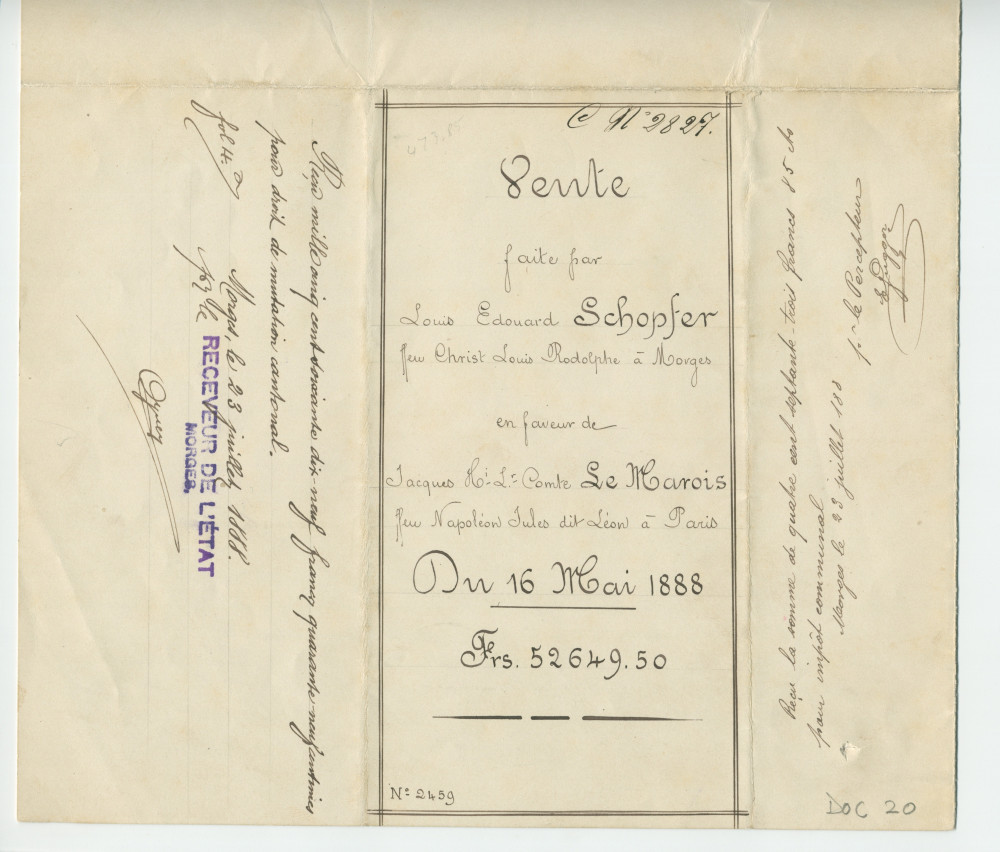 C Nº 2827.
Vente
faite par
Louis Edouard Schopfer
ffeu Christ Louis Rodolphe à Morges
en faveur de
Jacques Hi- Ls- Comte Le Marois
ffeu Napoléon Jules dit Léon à Paris
Du 16 Mai 1888
Frs. 52649.50
Nº 2459
Reçu mille cinq cent soixante dix-neuf francs quarante-neuf centimes
pour droit de mutation cantonal.
Morges, le 23 juillet 1888.
fol 4.
RECEVEUR DE L'ÉTAT
MORGES.
Reçu la somme de quatre cent septante-trois francs 85 cts
pour impôt communal
Morges le 23 juillet 188
pr le Percepteur
DOC 20